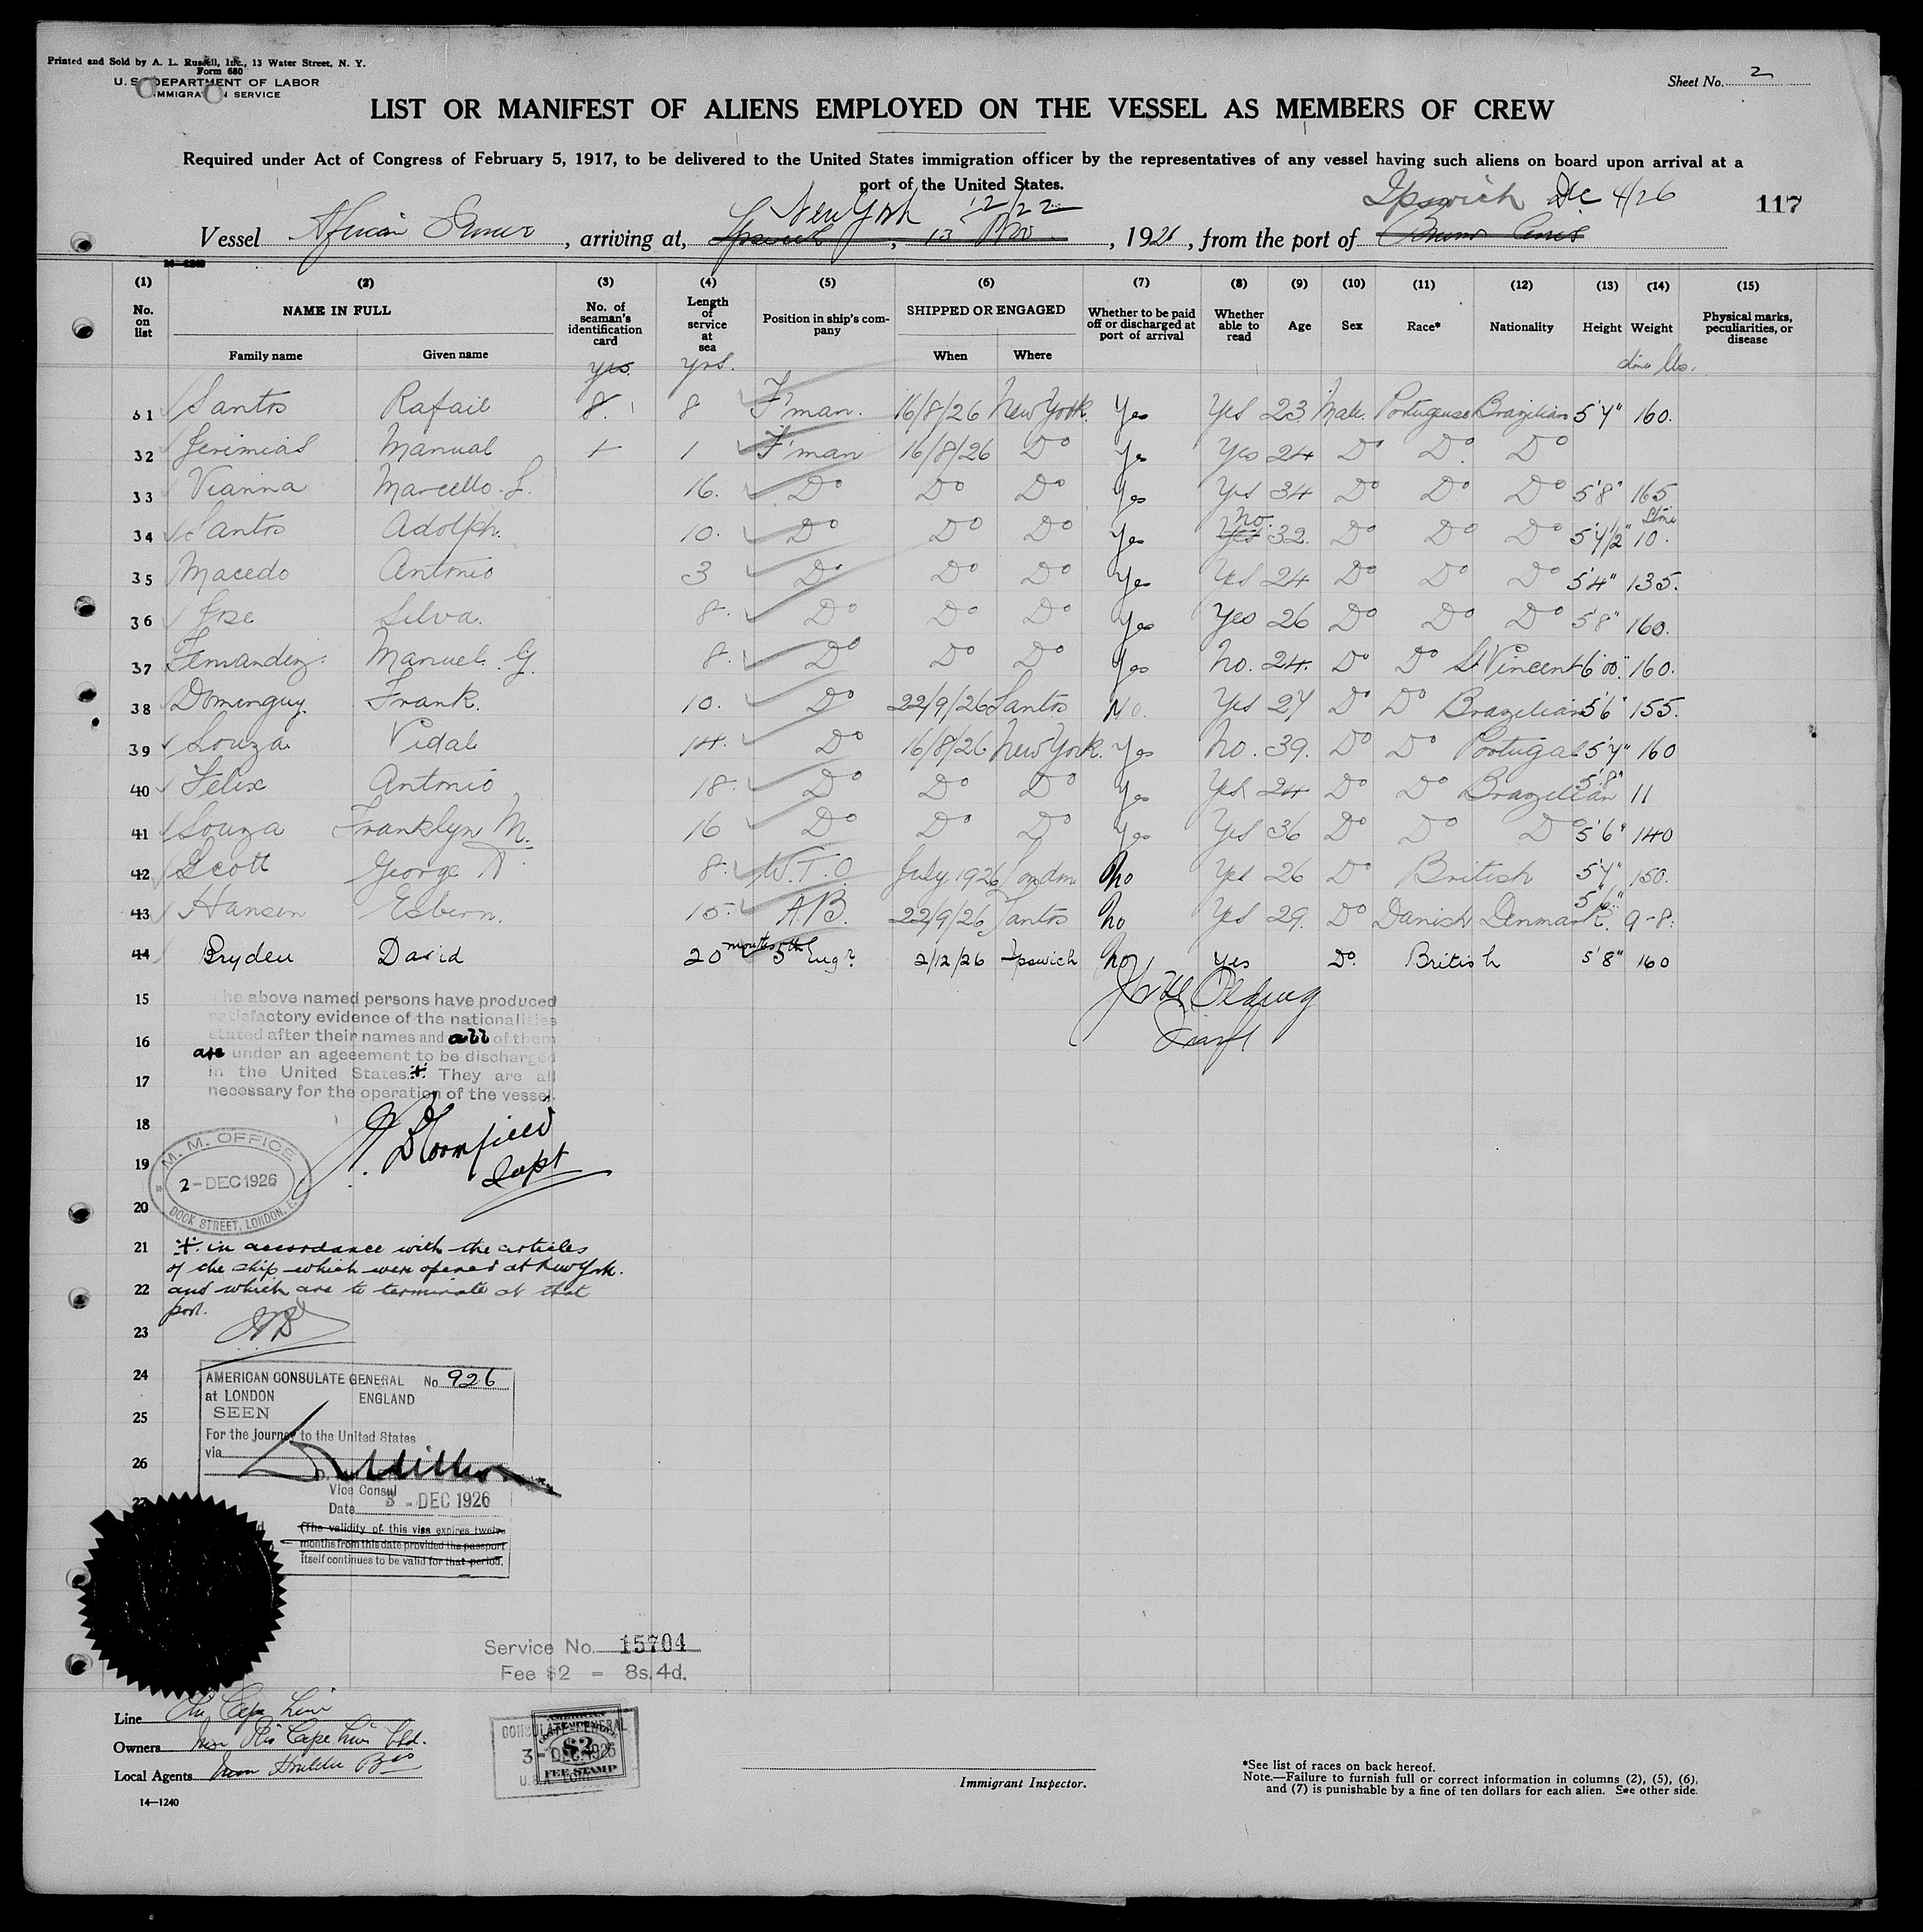 Printed and Sold by A. L. Russell, Inc., 13 Water Street, N. Y.
Form 680
U. S. DEPARTMENT OF LABOR
IMMIGRATION SERVICE
Sheet No. 2
LIST OR MANIFEST OF ALIENS EMPLOYED ON THE VESSEL AS MEMBERS OF CREW
Required under Act of Congress of February 5, 1917, to be delivered to the United States immigration officer by the representatives of any vessel having such aliens on board upon arrival at a
port of the United States.
New York 12/22 Ipswich Dec 4/26 117
Vessel African , arriving at, Ipswich , 13 Nov , 1926 , from the port of
(1) (2) (3) (4) (5) (6) (7) (8) (9) (10) (11) (12) (13) (14) (15)
No. on list NAME IN FULL No. of seaman's identification card Length of service at sea Position in ship's company SHIPPED OR ENGAGED Whether to be paid off or discharged at port of arrival Whether able to read Age Sex Race* Nationality Height Weight Physical marks, peculiarities, or disease
Family name Given name When Where
yrs. yrs. lbs.
31 Santos Rafail 8. 8 F'man. 16/8/26 New York. Yes Yes 23 Male. Portuguese Brazilian 5'7" 160.
32 Jerimias Manual + 1 F'man 16/8/26 Do Yes Yes 24 Do Do Do
33 Vianna Marcello. L. 16. Do Do Do Yes Yes 34 Do Do Do 5'8" 165
34 Santos Adolph. 10. Do Do Do Yes Yes no. 32. Do Do Do 5'7½" Stone 10.
35 Macedo Antonio 3 Do Do Do Yes Yes 24 Do Do Do 5'4" 135.
36 Jose Silva. 8. Do Do Do Yes Yes 26 Do Do Do 5'8" 160.
37 Fernandez. Manuel. G. 8. Do Do Do Yes No. 24. Do Do St Vincent 6'00". 160.
38 Dominguy. Frank. 10. Do 22/9/26 Santos No. Yes 27 Do Do Brazilian 5'6" 155.
39 Souza Vidal 14. Do 16/8/26 New York. Yes No. 39. Do Do Portugal 5'7" 160
40 Felix Antonio 18. Do Do Do Yes Yes 24 Do Do Brazilian 5'8" 11
41 Souza Franklyn M. 16 Do Do Do Yes Yes 36 Do Do Do 5'6" 140
42 Scott George 8. W.T.O. July 1926 London No Yes 26 Do British 5'7" 150.
43 Hansen Esbern. 15. A.B. 22/9/26 Santos No Yes 29. Do Danish Denmark. 5'6" 9-8.
44 Bryden David 20 months 5th Engr. 2/12/26 Ipswich No Yes Do. British 5'8" 160
15 The above named persons have produced
satisfactory evidence of the nationalities
stated after their names and all of them
16 are under an ageeement to be discharged
in the United States.+. They are all
17 necessary for the operation of the vessel.
18
J. Bloomfield
19
Supt
M. M. OFFICE
2-DEC 1926
DOCK STREET, LONDON, E.
20
21 + in accordance with the articles
of the ship which were opened at New York.
22 and which are to terminate at that
port.
23
24 AMERICAN CONSULATE GENERAL No. 926
at LONDON ENGLAND
SEEN
25
For the journey to the United States
via
26
Vice Consul
Date 3 - DEC 1926
27
(The validity of this visa expires twelve
months from this date provided the passport
itself continues to be valid for that period.
Service No. 15704
Fee $2 = 8s. 4d.
Line Cape Line
Owners Rio Cape Line Ltd.
Local Agents Houlder Bros
14—1240
AMERICAN
CONSULATE-GENERAL
$2
3-DEC 1926
FEE STAMP
Immigrant Inspector.
*See list of races on back hereof.
Note.—Failure to furnish full or correct information in columns (2), (5), (6),
and (7) is punishable by a fine of ten dollars for each alien. See other side.